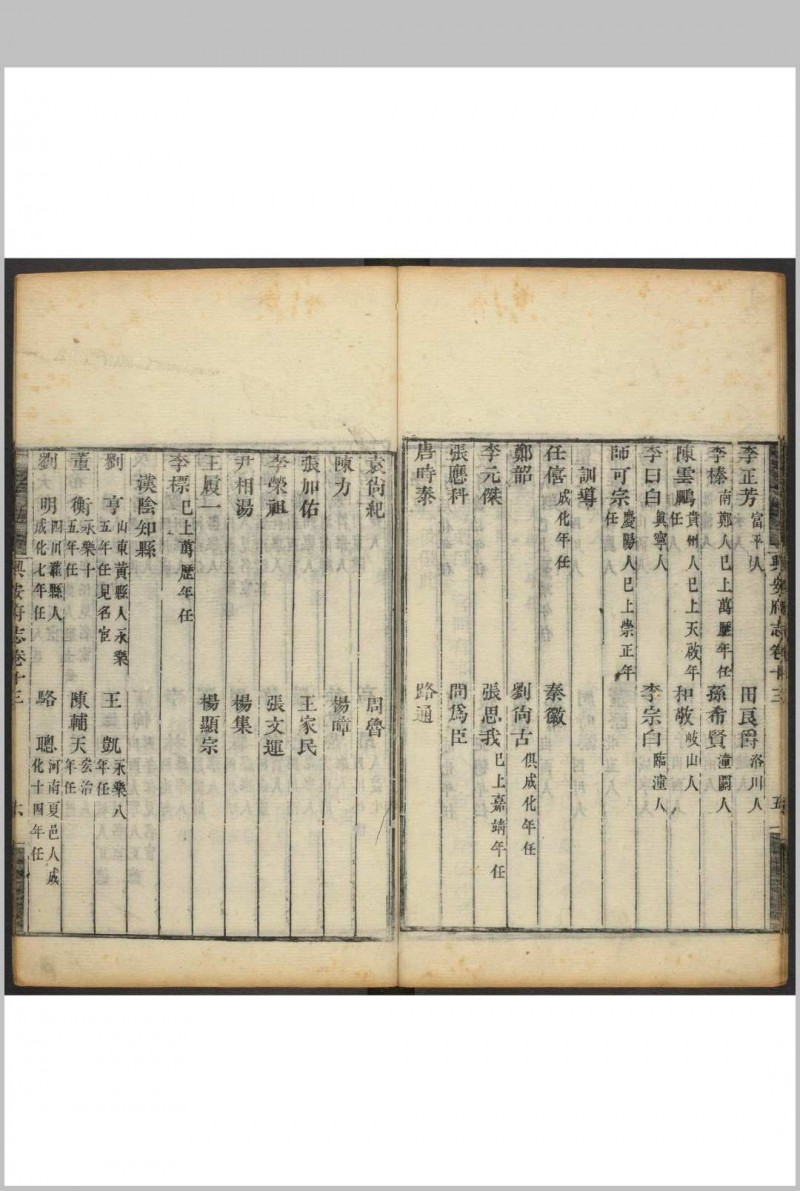 興安府志卷十三 五
李正芳 富平人 田良爵 洛川人
李榛 南鄭人已上萬歷年任 孫希賢 潼關人
陳雲鵬 貴州人已上天啟年任 和敬 岐山人
李日白 興寧人 李宗白 臨潼人
師可宗 慶陽人已上崇正年任
訓導
任僖 成化年任 秦徽
鄭韶 劉尚古 俱成化年任
李元傑 張思我 已上嘉靖年任
張應科 問為臣
唐時泰 路通
袁尚紀 周魯
陳力 楊暐
張加佑 王家民
李榮祖 張文運
尹相湯 楊集
王履一 楊顯宗
李標 已上萬歷年任
漢陰知縣
劉亨 山東黃縣人永樂五年任見名宦 王凱 永樂八年任
董衡 永樂十五年任 陳輔天 宏治年任
劉明 四川羅縣人成化七年任 駱聰 河南夏邑人成化十四年任
興安府志卷十三 六